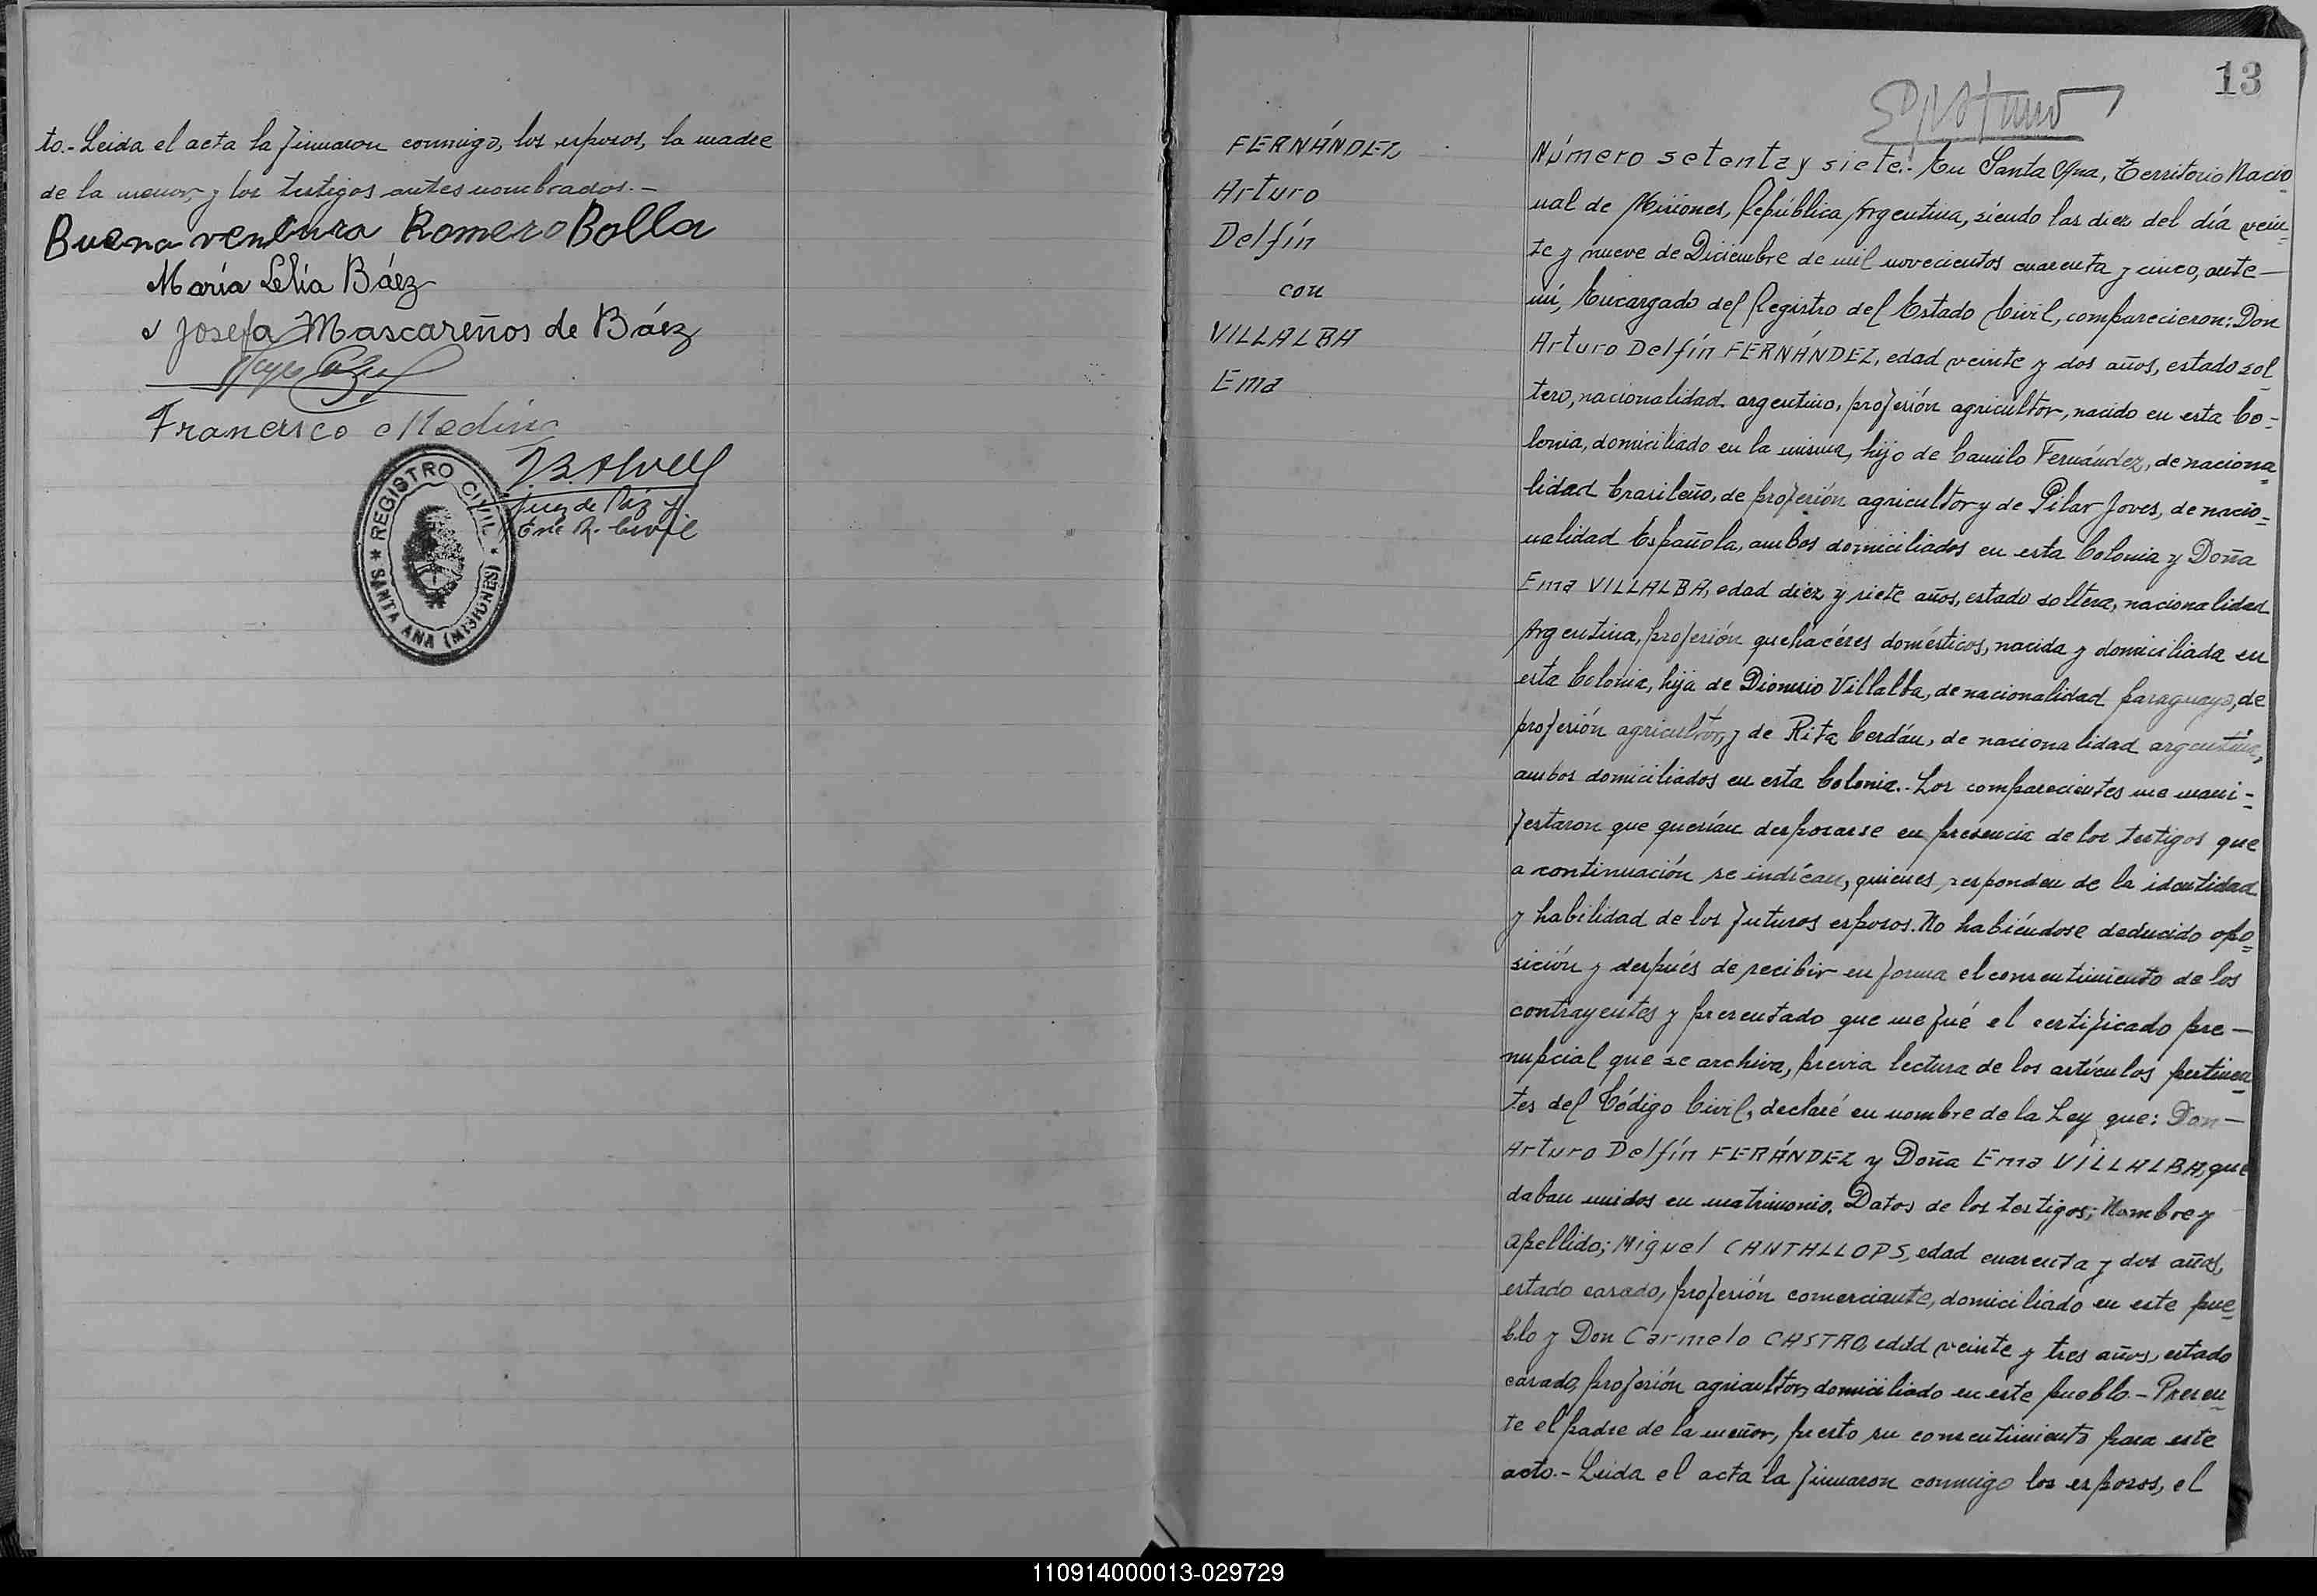 to.- Leida el acta la firmaron conmigo, los esposos, la madre
de la menor, y los testigos antes nombrados.-
Buenaventura Romero Bolla
María Lelia Báez
Josefa Mascareños de Báez
Francisco Medina
Juez de Páz y
Enc. R. Civil
REGISTRO CIVIL
SANTA ANA (MISIONES)
13
FERNÁNDEZ
Arturo
Delfín
con
VILLALBA
Ema
Número setenta y siete.- En Santa Ana, Territorio Nacio
nal de Misiones, República Argentina, siendo las diez del día vein=
te y nueve de Diciembre de mil novecientos cuarenta y cinco, ante—
mí, Encargado del Registro del Estado Civil, comparecieron: Don
Arturo Delfín FERNÁNDEZ, edad veinte y dos años, estado sol
tero, nacionalidad argentino, profesión agricultor, nacido en esta Co=
lonia, domiciliado en la misma, hijo de Camilo Fernández, de naciona
lidad brasileño, de profesión agricultor y de Pilar Joves, de nacio=
nalidad Española, ambos domiciliados en esta Colonia y Doña
Ema VILLALBA, edad diez y siete años, estado soltera, nacionalidad
Argentina, profesión quehacéres domésticos, nacida y domiciliada en
esta Colonia, hija de Dionisio Villalba, de nacionalidad paraguayo, de
profesión agricultor, y de Rita Cerdán, de nacionalidad argentina,
ambos domiciliados en esta Colonia.- Los comparecientes me mani=
festaron que querían desposarse en presencia de los testigos que
a continuación se indícan, quienes responden de la identidad
y habilidad de los futuros esposos. No habiéndose deducido opo=
sición y después de recibir en forma el consentimiento de los
contrayentes y presentado que me fué el certificado pre—
nupcial que se archiva, previa lectura de los artículos pertinen
tes del Código Civil, declaré en nombre de la Ley que: Don—
Arturo Delfín FERÁNDEZ y Doña Ema VILLALBA, que
daban unidos en matrimonio. Datos de los testigos; Nombre y
apellido; Miguel CANTALLOPS, edad cuarenta y dos años,
estado casado, profesión comerciante, domiciliado en este pue
blo y Don Carmelo CASTRO, edad veinte y tres años, estado
casado, profesión agricultor, domiciliado en este pueblo.- Presen
te el padre de la menor, presto su consentimiento para este
acto.- Leida el acta la firmaron conmigo los esposos, el
110914000013-029729